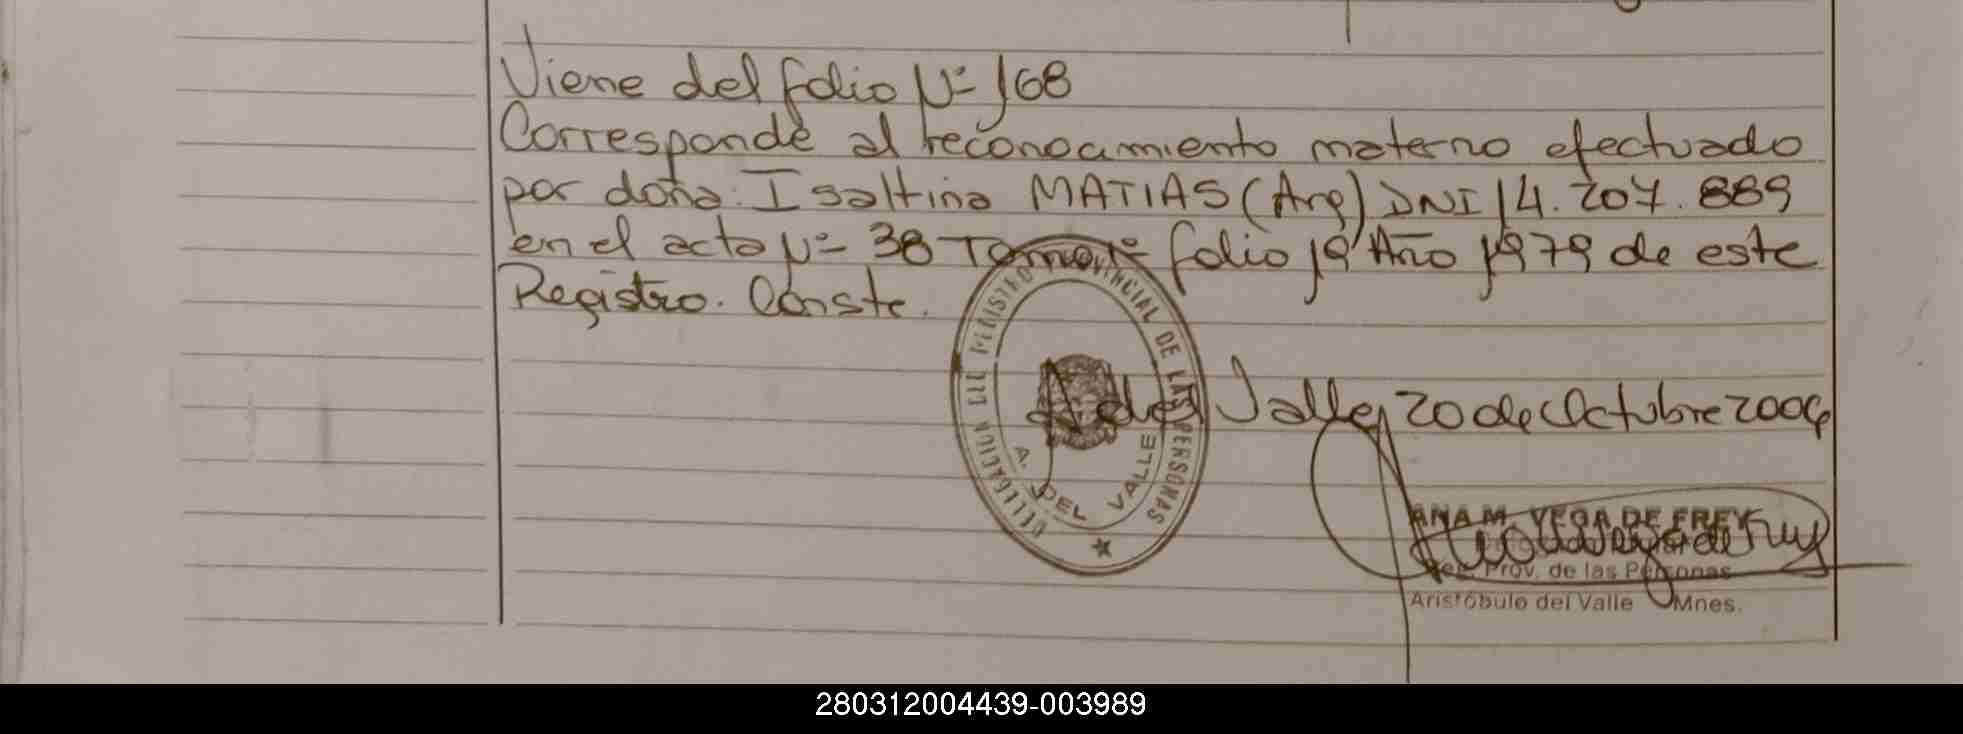 Viene del folio Nº 168
Corresponde al reconocimiento materno efectuado
por doña: Isaltina MATIAS (Arg) DNI 14.207.889
en el acta Nº 38 Tomo 1º folio 19 Año 1979 de este
Registro. Conste.
DELEGACION DEL REGISTRO PROVINCIAL DE LAS PERSONAS
A. DEL VALLE
A. del Valle, 20 de Octubre 2004
ANA M. VEGA DE FREY
Reg. Prov. de las Personas
Aristóbulo del Valle Mnes.
280312004439-003989